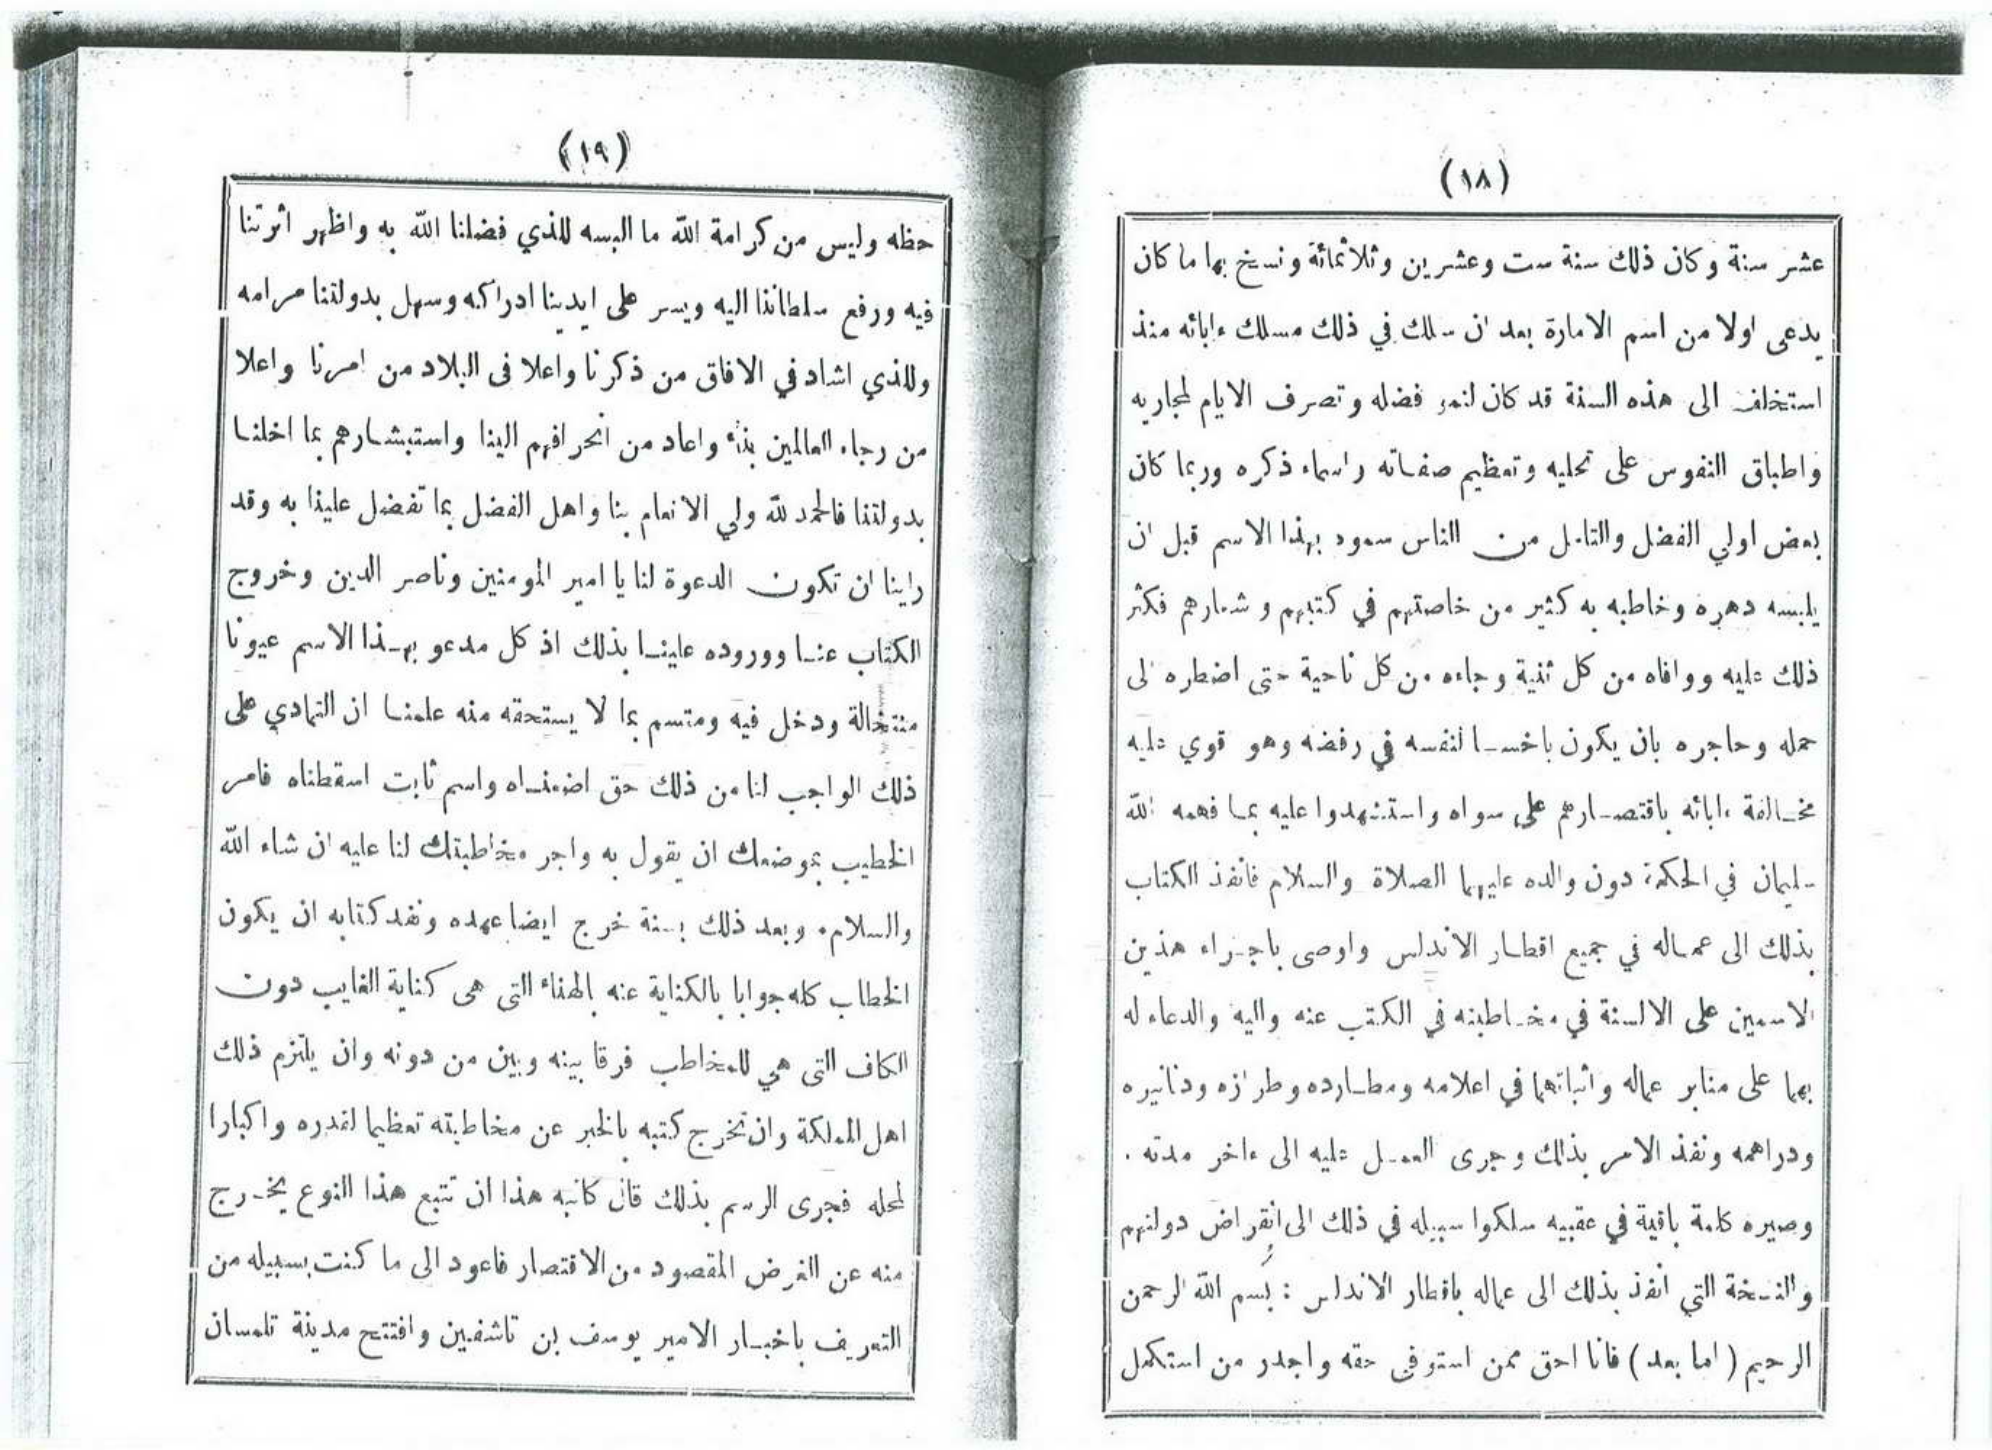 (١٨)
عشر سنة وكان ذلك سنة ست وعشرين وثلاثمائة ونسخ بها ما كان
يدعى اولا من اسم الامارة بعد ان سلك في ذلك مسلك ءابائه منذ
استخلف الى هذه السنة قد كان لنمو فضله وتصرف الايام لمجاريه
واطباق النفوس على تحليه وتعظيم صفاته واسماء ذكره وربما كان
بعض اولي الفضل والتامل من الناس سموه بهذا الاسم قبل ان
يلبسه دهره وخاطبه به كثير من خاصتهم في كتبهم و شعارهم فكثر
ذلك عليه ووافاه من كل ثنية وجاءه من كل ناحية حتى اضطره الى
حمله وحاجره بان يكون باخسا لنفسه في رفضه وهو قوي عليه
مخالفة ءابائه باقتصارهم على سواه واستشهدوا عليه بما فهمه الله
سليمان في الحكمة دون والده عليهما الصلاة والسلام فانفذ الكتاب
بذلك الى عماله في جميع اقطار الاندلس واوصى باجراء هذين
الاسمين على الالسنة في مخاطبته في الكتب عنه واليه والدعاء له
بهما على منابر عماله واثباتهما في اعلامه ومطارده وطرازه ودنانيره
ودراهمه ونفذ الامر بذلك وجرى العمل عليه الى ءاخر مدته .
وصيره كلمة باقية في عقبيه سلكوا سبيله في ذلك الى انقراض دولتهم
والنسخة التي انفذ بذلك الى عماله باقطار الاندلس : بسم الله الرحمن
الرحيم (اما بعد) فانا احق ممن استوفى حقه واجدر من استكمل
(١٩)
حظه وليس من كرامة الله ما البسه للذي فضلنا الله به واظهر اثرتنا
فيه ورفع سلطاننا اليه ويسر على ايدينا ادراكه وسهل بدولتنا مرامه
وللذي اشاد في الافاق من ذكرنا واعلا فى البلاد من امرنا واعلا
من رجاء العالمين بنا واعاد من انحرافهم الينا واستبشارهم بما اخلنا
بدولتنا فالحمد لله ولي الانعام بنا واهل الفضل بما تفضل علينا به وقد
راينا ان تكون الدعوة لنا يا امير المومنين وناصر الدين وخروج
الكتاب عنا ووروده علينا بذلك اذ كل مدعو بهذا الاسم عيونا
منتخالة ودخل فيه ومتسم بما لا يستحقه منه علمنا ان التمادي على
ذلك الواجب لنا من ذلك حق اضعناه واسم ثابت اسقطناه فامر
الخطيب بموضعك ان يقول به واجر مخاطبتك لنا عليه ان شاء الله
والسلام. وبعد ذلك بسنة خرج ايضا عهده ونفد كتابه ان يكون
الخطاب كله جوابا بالكناية عنه بالهاء التى هى كناية الغايب دون
الكاف التى هي للمخاطب فرقا بينه وبين من دونه وان يلتزم ذلك
اهل المملكة وان تخرج كتبه بالخبر عن مخاطبته تعظيما لقدره واكبارا
لمحله فجرى الرسم بذلك قال كاتبه هذا ان تتبع هذا النوع يخرج
منه عن الغرض المقصود من الاقتصار فاعود الى ما كنت بسبيله من
التعريف باخبار الامير يوسف بن تاشفين وافتتح مدينة تلمسان